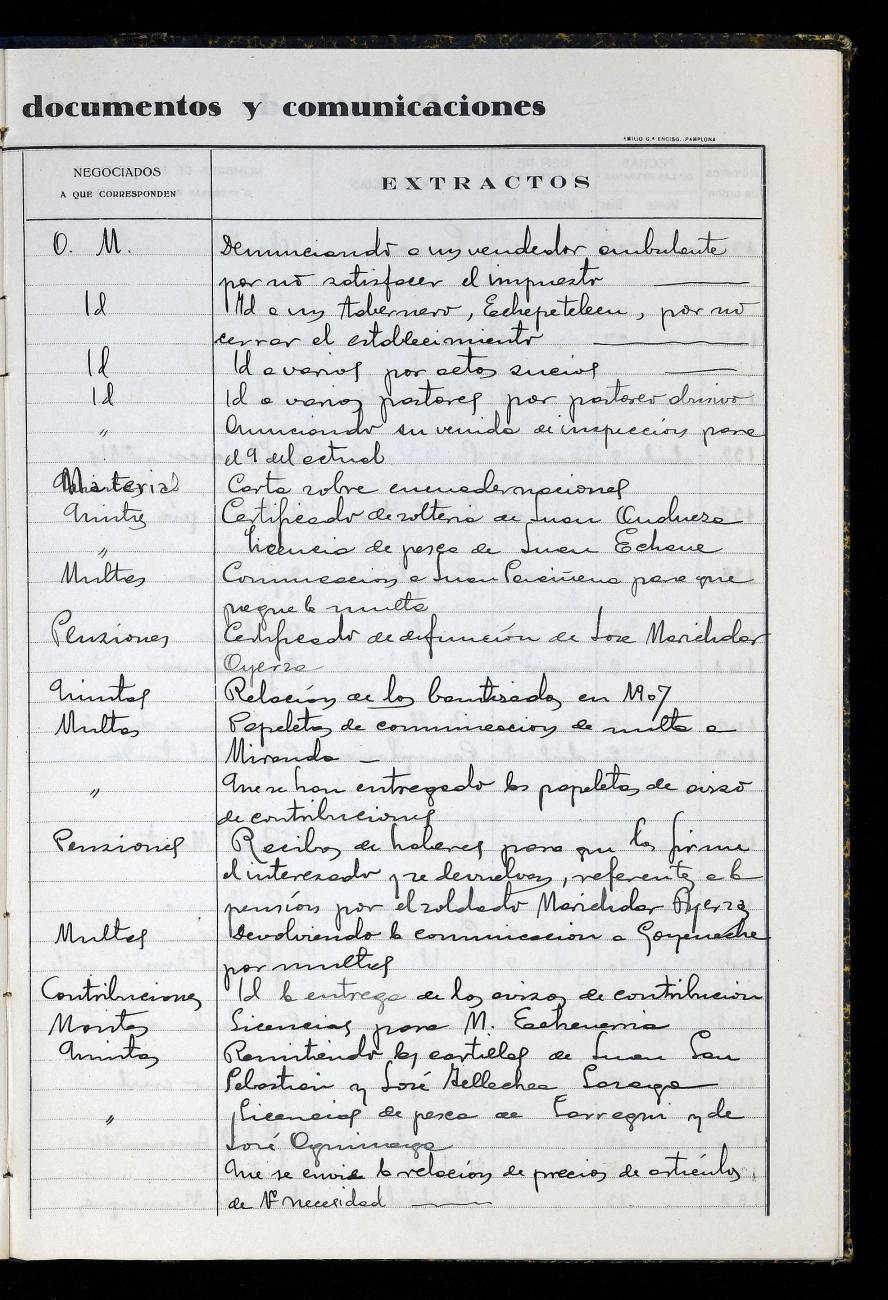 documentos y comunicaciones
EMILIO G.ª ENCISO.-PAMPLONA
NEGOCIADOS
A QUE CORRESPONDEN
EXTRACTOS
O. M. Denunciando a un vendedor ambulante
por no satisfacer el impuesto
Id Id a un tabernero, Echepeteleen, por no
cerrar el establecimiento
Id Id a varios por actos sucios
Id Id a varios pastores por pastoreo abusivo
" Anunciando su venida de inspección para
el 9 del actual
Material Carta sobre encuadernaciones
Quintas Certificado de solteria de Juan Andueza
" Licencia de pesca de Juan Echave
Multas Comunicacion a Juan para que
pague la multa
Pensiones Certificado de defunción de Jose Marichalar
Oyerza
Quintas Relación de los bautizados en 1907
Multas Papeletas de comunicacion de multa a
Miranda
" Que se han entregado las papeletas de aviso
de contribuciones
Pensiones Recibos de haberes para que los firme
el interesado y se devuelvan, referente a la
pensión por el soldado Marichalar Oyerza
Multas Devolviendo la comunicacion a Goyeneche
por multas
Contribuciones Id la entrega de los avisos de contribucion
Montes Licencias para M. Echeverria
Quintas Remitiendo las cartillas de Juan San
Sebastian y José Tellechea
" Licencias de pesca de Larregui y de
José
Que se envie la relación de precios de artículos
de 1ª necesidad